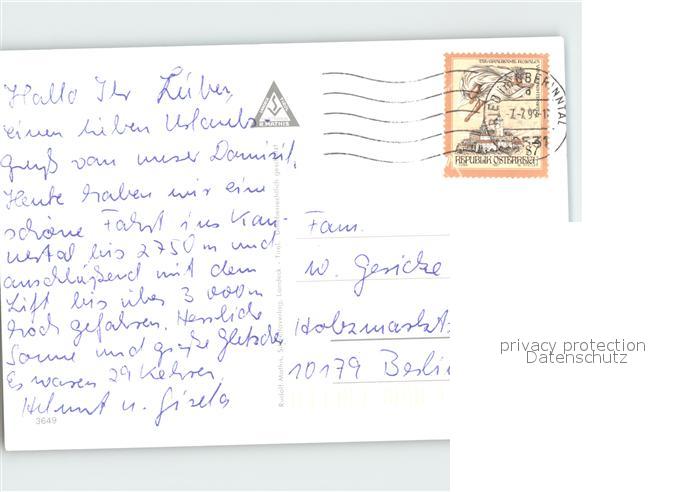 Hallo Ihr Lieben,
einen lieben Urlaubs-
gruß von unser Domizil.
Heute haben wir eine
schöne Fahrt ins Kau-
nertal bis 2750 m und
anschließend mit dem
Lift bis über 3 000 m
hoch gefahren. Herrliche
Sonne und große Gletscher
Es waren 29 Kehren.
Helmut u. Gisela
3649
REPUBLIK ÖSTERREICH
S7
RIED IM OBERINNTAL
6531
Fam.
W. Gericke
Holzmarkt
10179 Berlin
privacy protection
Datenschutz